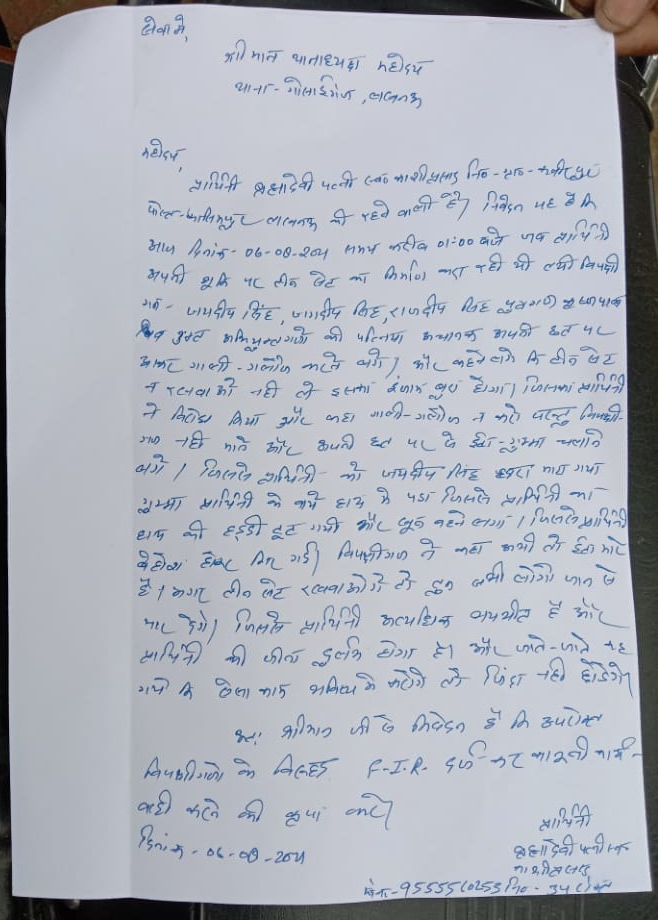 सेवा में,
श्रीमान थानाध्यक्ष महोदय
थाना - गोसाईगंज, लखनऊ
महोदय,
प्रार्थिनी पत्नी स्व० काशीप्रसाद नि०-ग्राम-
पोस्ट- लखनऊ की रहने वाली है। निवेदन यह है कि
आज दिनांक- 06-08- समय करीब 01:00 बजे जब प्रार्थिनी
अपनी भूमि पर टीन सेट का निर्माण करा रही थी तभी विपक्षी
गण- जयदीप सिंह, जगदीप सिंह, राजदीप सिंह पुत्रगण
एवं उक्त अभियुक्तगणों की पत्नियां अचानक अपनी छत पर
आकर गाली-गलौज करने लगे। और कहने लगे कि टीन सेट
न रखवाओ नहीं तो इसका अंजाम बुरा होगा। जिसका प्रार्थिनी
ने विरोध किया और कहा गाली-गलौज न करो परन्तु विपक्षी-
गण नहीं माने और अपनी छत पर से ईंटा-गुम्मा चलाने
लगे। जिससे प्रार्थिनी को जयदीप सिंह द्वारा मारा गया
गुम्मा प्रार्थिनी के बायें हाथ में पड़ा जिससे प्रार्थिनी का
हाथ की हड्डी टूट गयी और खून बहने लगा। जिससे प्रार्थिनी
बेहोश होकर गिर गई। विपक्षीगण ने कहा अभी तो ईंटा मारे
है। अगर टीन सेट रखवाओगे तो तुम सभी लोगों जान से
मार देंगे। जिससे प्रार्थिनी अत्यधिक भयभीत है और
प्रार्थिनी का जीना दुर्लभ होगा है। और जाते-जाते यह
गये कि ऐसा काम भविष्य में करोगे तो जिंदा नहीं छोडेंगे।
अतः श्रीमान जी से निवेदन है कि उपरोक्त
विपक्षीगणों के विरुद्ध F.I.R. दर्ज कर कानूनी कार्य-
वाही करने की कृपा करें।
दिनांक - 06-08-
प्रार्थिनी
पत्नी स्व०
काशीप्रसाद